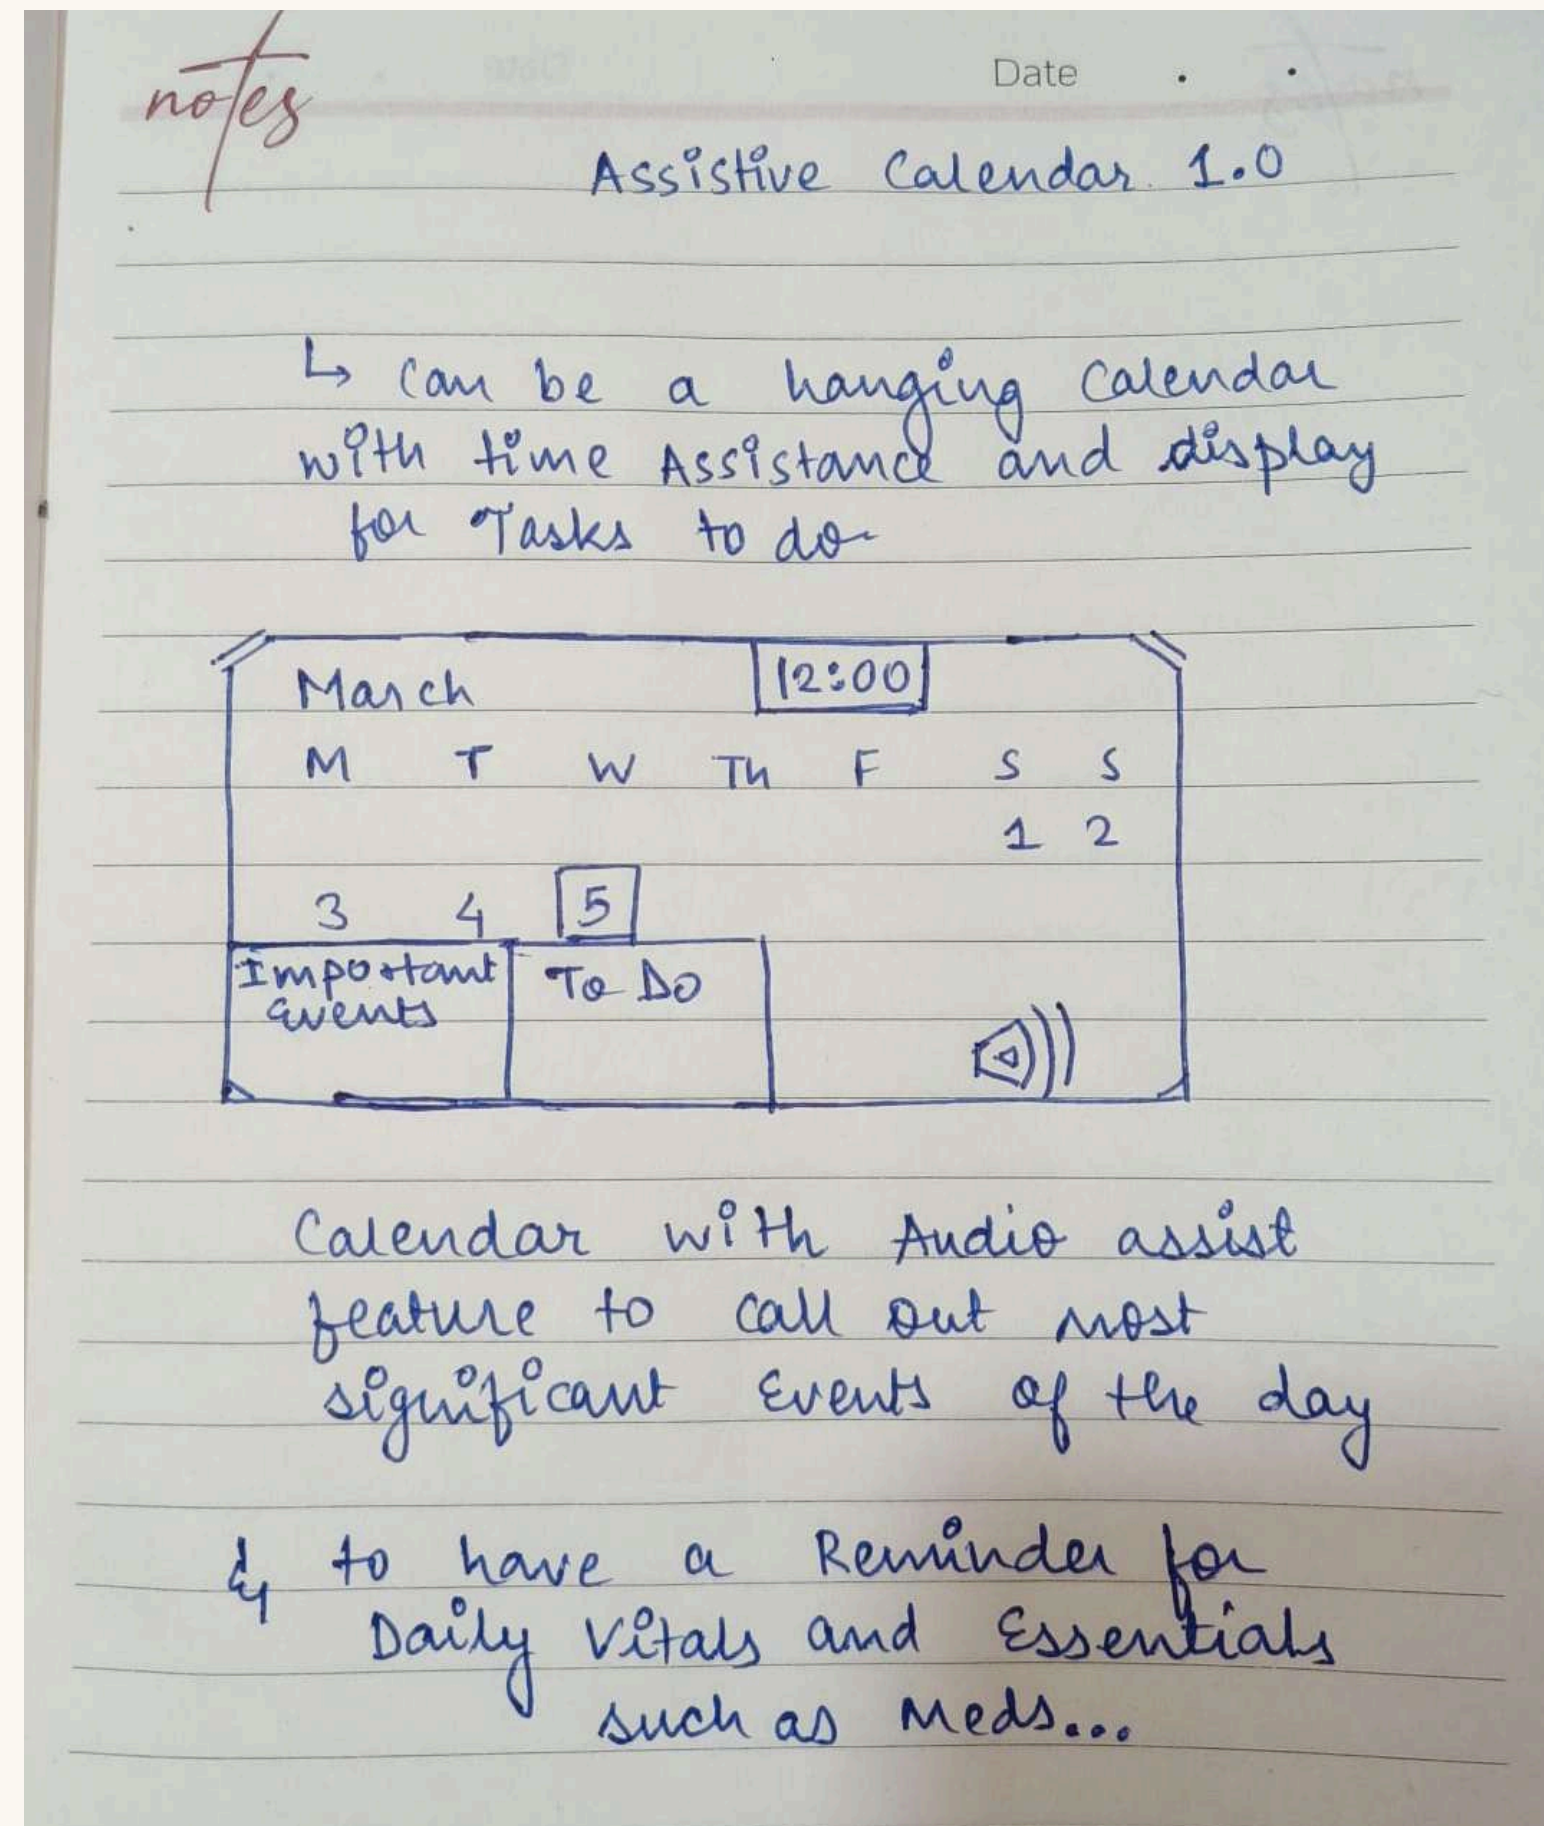 notes
Date . .
Assistive Calendar 1.0
↳ Can be a hanging Calendar
with time Assistance and display
for Tasks to do
March 12:00
M T W Th F S S
1 2
3 4 5
Important
Events
To Do
Calendar with Audio assist
feature to call out most
significant Events of the day
& to have a Reminder for
Daily Vitals and Essentials
such as Meds...